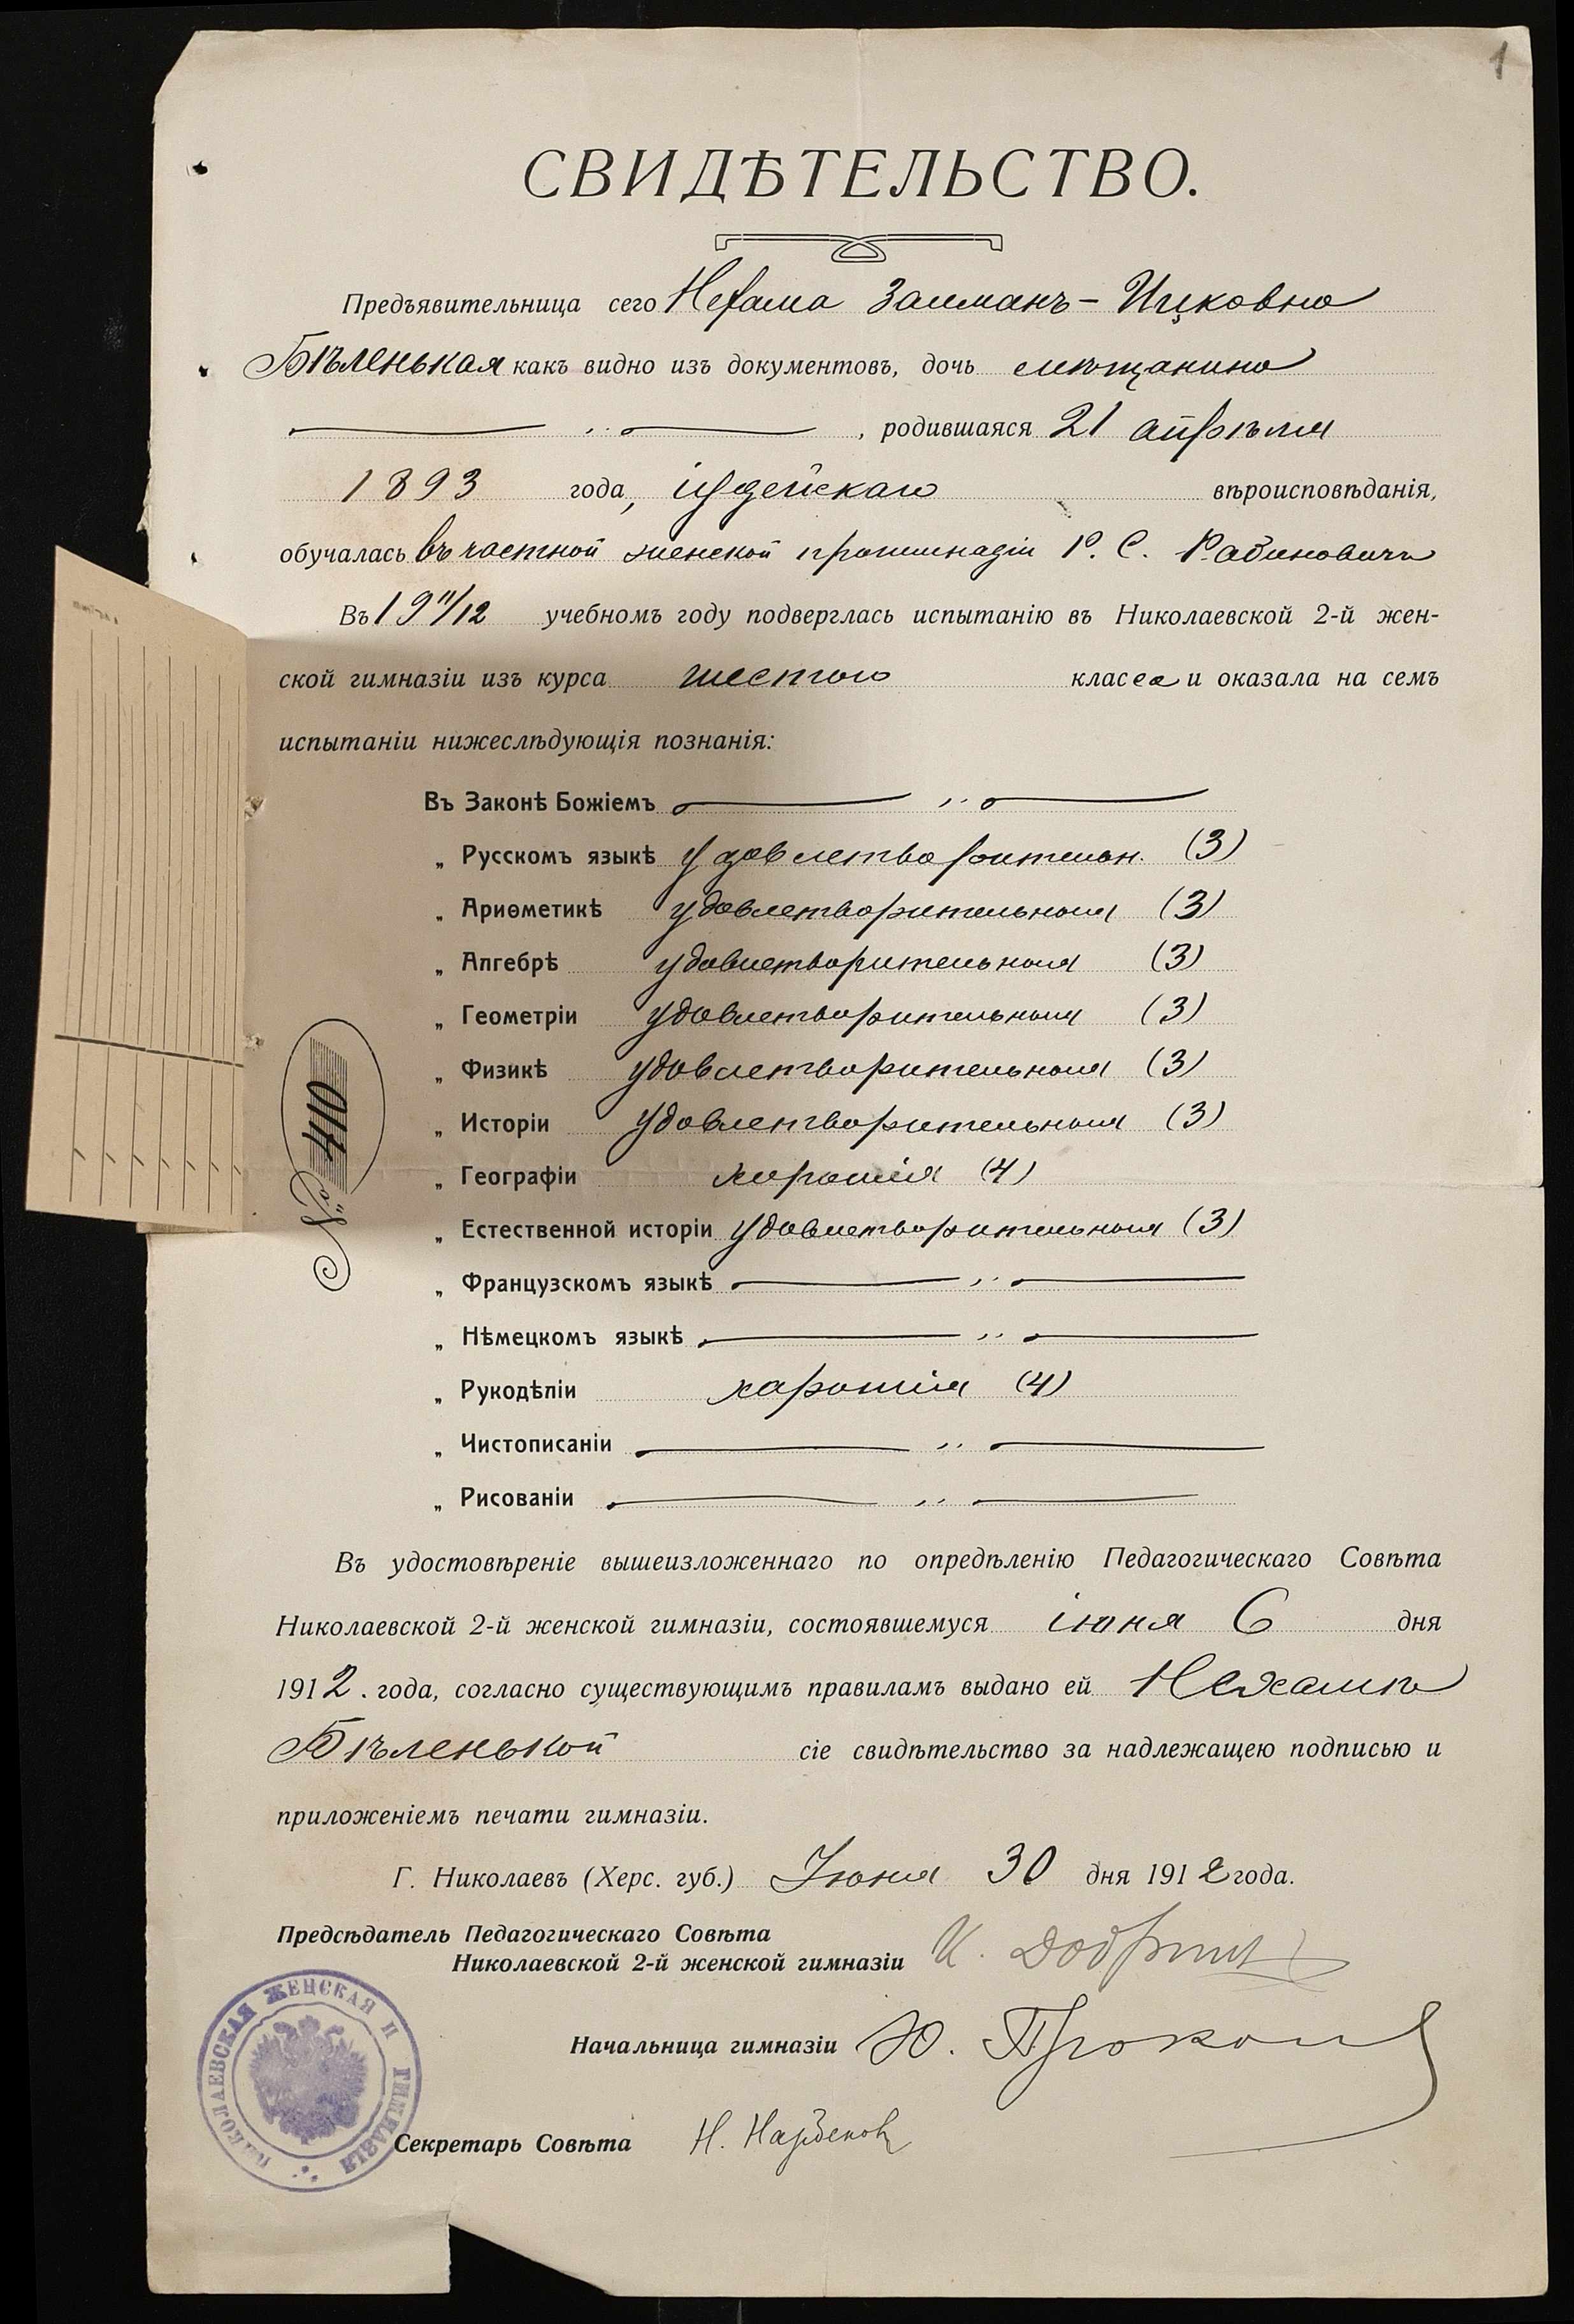 1
СВИДѢТЕЛЬСТВО.
Предъявительница сего Нехама Залманъ-Ицковна
Бѣленькая какъ видно изъ документовъ, дочь мѣщанина
, родившаяся 21 апрѣля
1893 года, іудейскаго вѣроисповѣданія,
обучалась въ частной женской прогимназіи Р. С. Рабиновичъ
Въ 1911/12 учебномъ году подверглась испытанію въ Николаевской 2-й жен-
ской гимназіи изъ курса шестого класса и оказала на семъ
испытаніи нижеслѣдующія познанія:
Въ Законѣ Божіемъ „
„ Русскомъ языкѣ удовлетворительн. (3)
„ Ариѳметикѣ удовлетворительныя (3)
„ Алгебрѣ удовлетворительныя (3)
„ Геометріи удовлетворительныя (3)
„ Физикѣ удовлетворительныя (3)
„ Исторіи удовлетворительныя (3)
„ Географіи хорошія (4)
„ Естественной исторіи удовлетворительныя (3)
„ Французскомъ языкѣ „
„ Нѣмецкомъ языкѣ „
„ Рукодѣліи хорошія (4)
„ Чистописаніи „
„ Рисованіи „
№ 410
Въ удостовѣреніе вышеизложеннаго по опредѣленію Педагогическаго Совѣта
Николаевской 2-й женской гимназіи, состоявшемуся іюня 6 дня
1912. года, согласно существующимъ правиламъ выдано ей Нехамѣ
Бѣленькой сіе свидѣтельство за надлежащею подписью и
приложеніемъ печати гимназіи.
Г. Николаевъ (Херс. губ.) Іюня 30 дня 1912 года.
Предсѣдатель Педагогическаго Совѣта
Николаевской 2-й женской гимназіи И.
Начальница гимназіи Ю.
Секретарь Совѣта Н.
НИКОЛАЕВСКАЯ ЖЕНСКАЯ II ГИМНАЗІЯ